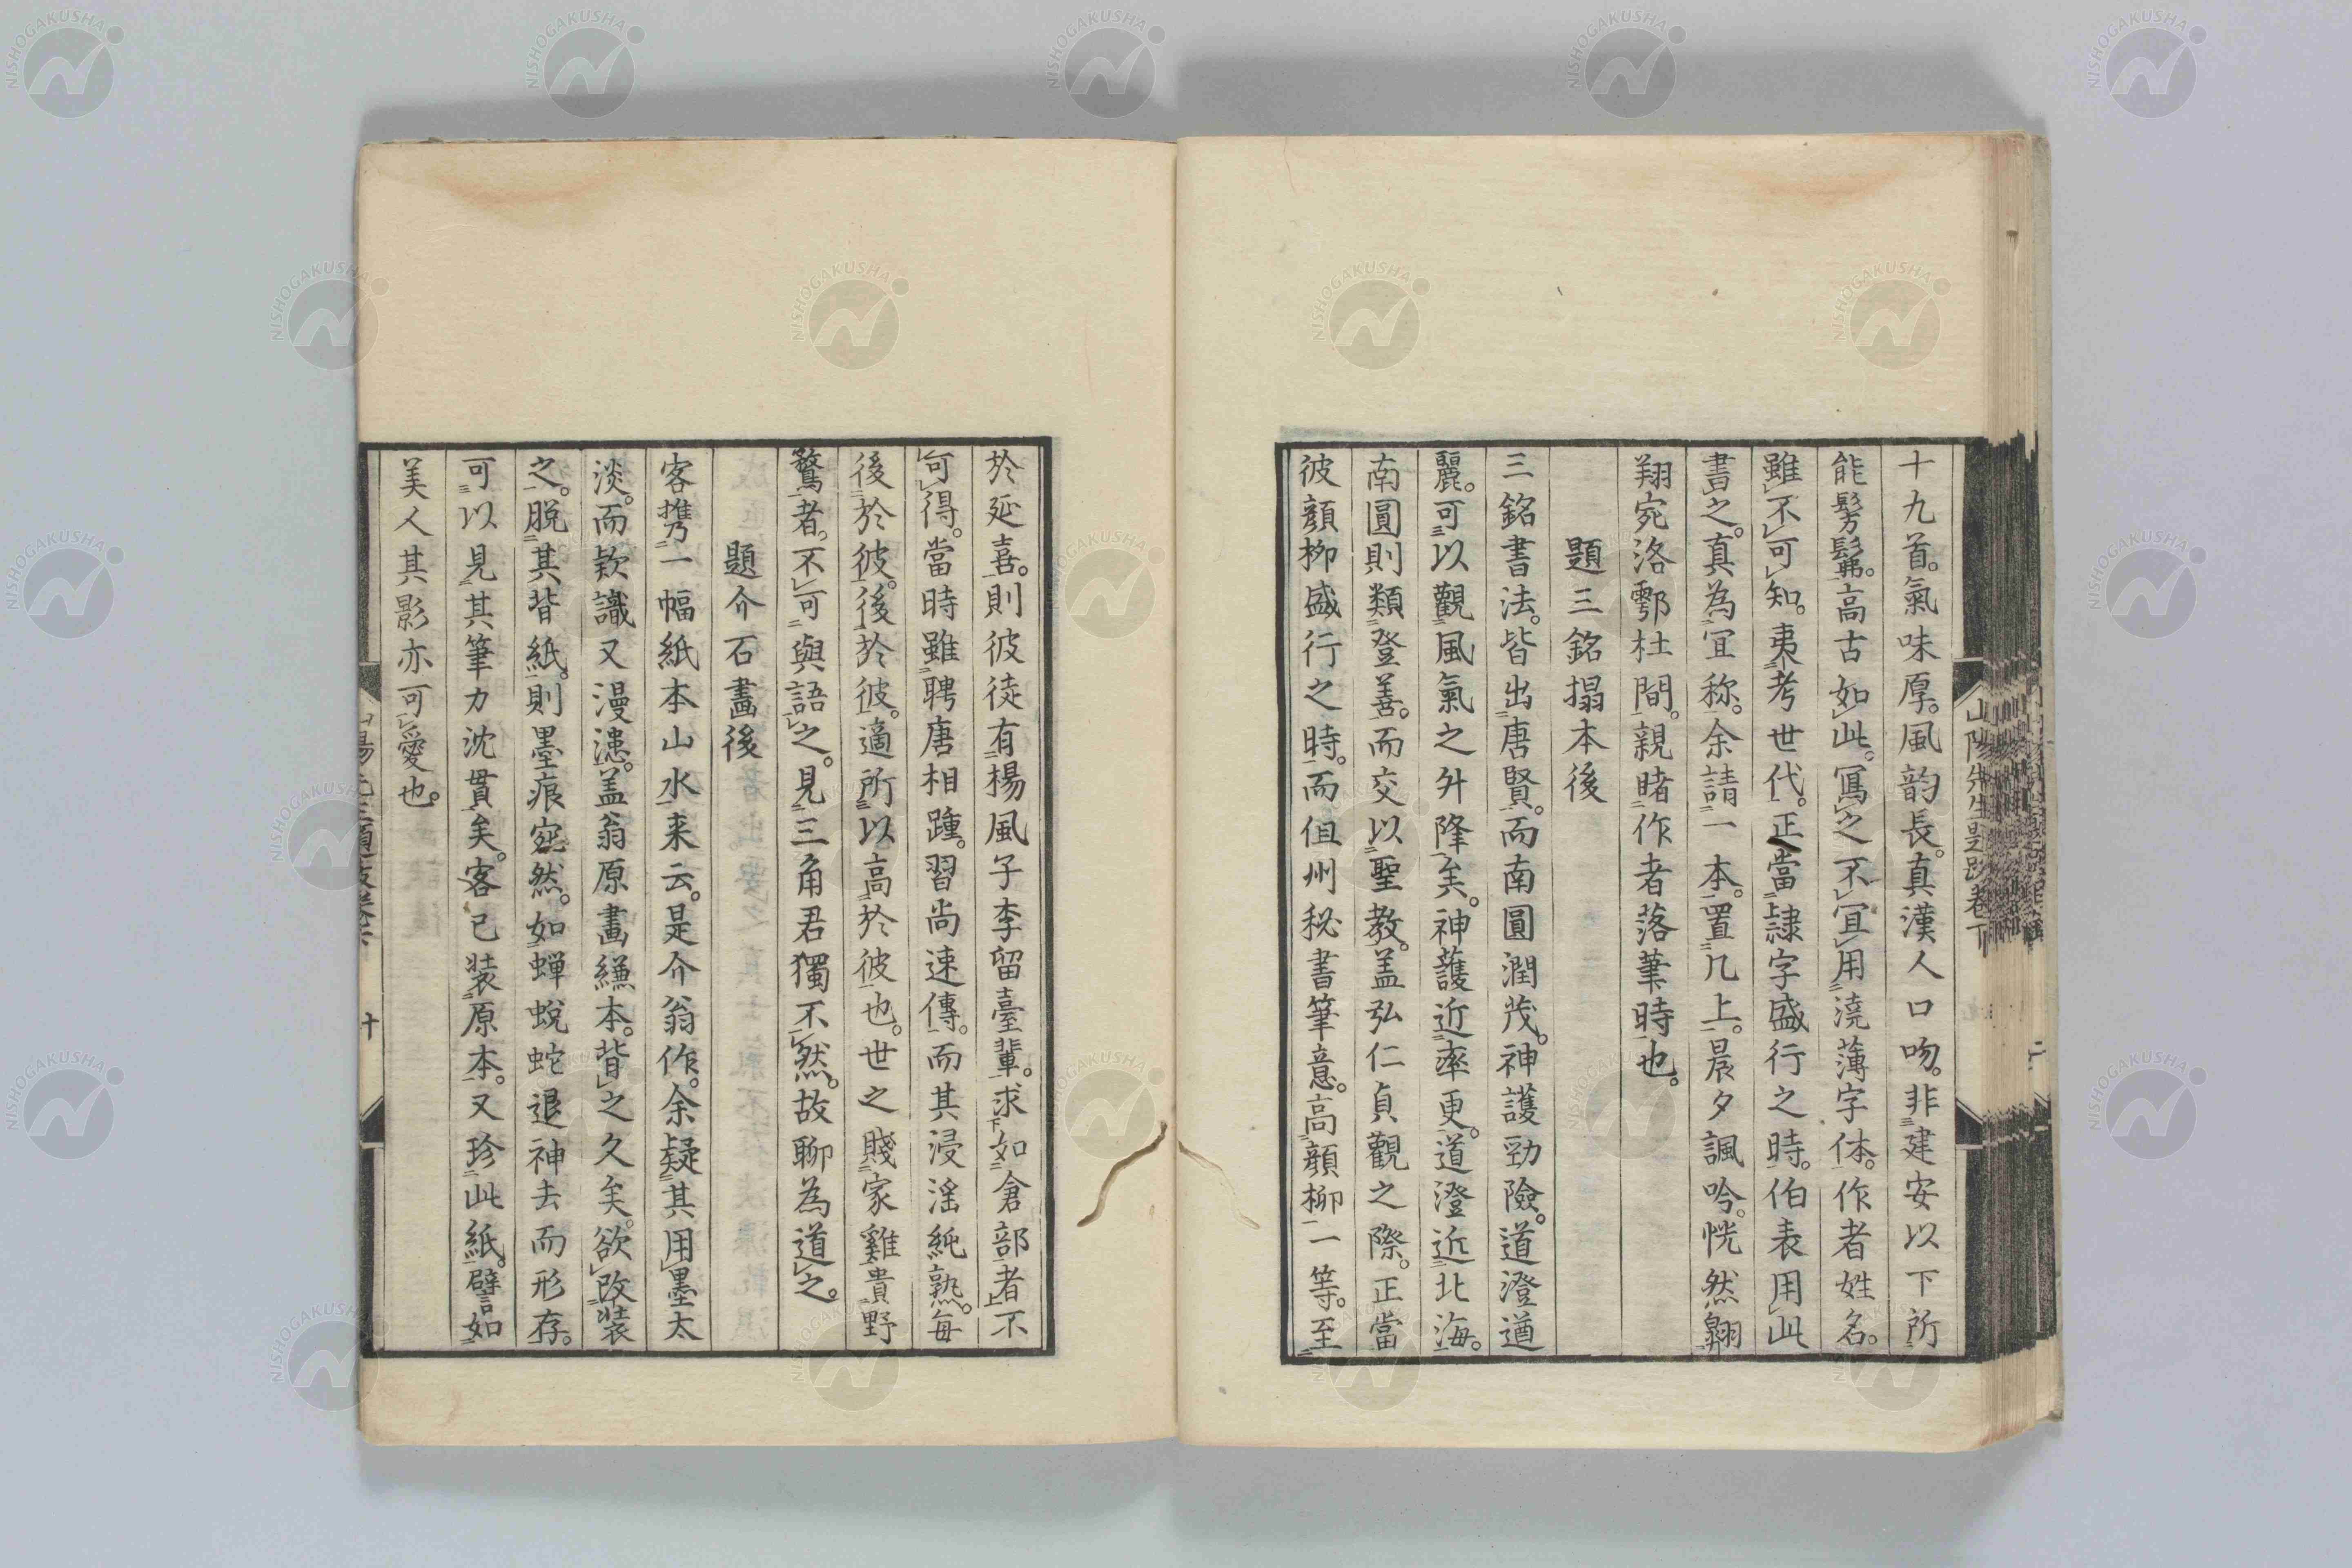 十九首。氣味厚。風韵長。真漢人口吻。非建安以下所
能髣髴。高古如此。寫之不宜用澆薄字体。作者姓名。
雖不可知。夷考世代。正當隷字盛行之時。伯表用此
書之。真為宜称。余請一本。置几上。晨夕諷吟。恍然翺
翔宛洛鄠杜間。親睹作者落筆時也。
題三銘搨本後
三銘書法。皆出唐賢。而南圓潤茂。神護勁險。道澄遒
麗。可以觀風氣之升降矣。神護近率更。道澄近北海。
南圓則類登善。而交以聖教。盖弘仁貞觀之際。正當
彼顔柳盛行之時。而但州秘書筆意。高顔柳一等。至
於延喜。則彼徒有楊風子李留臺輩。求如倉部者不
可得。當時雖聘唐相踵。習尚速傳。而其浸淫純熟。每
後於彼。後於彼。適所以高於彼也。世之賤家雞貴野
鶩者。不可與語之。見三角君獨不然。故聊為道之。
題介石畫後
客携一幅紙本山水来云。是介翁作。余疑其用墨太
淡。而欵識又漫漶。盖翁原畫縑本。背之久矣。欲改装
之。脱其背紙。則墨痕宛然。如蝉蛻蛇退神去而形存。
可以見其筆力沈貫矣。客已装原本。又珍此紙。譬如
美人其影亦可愛也。
山陽先生題跋卷下
十
NISHOGAKUSHA